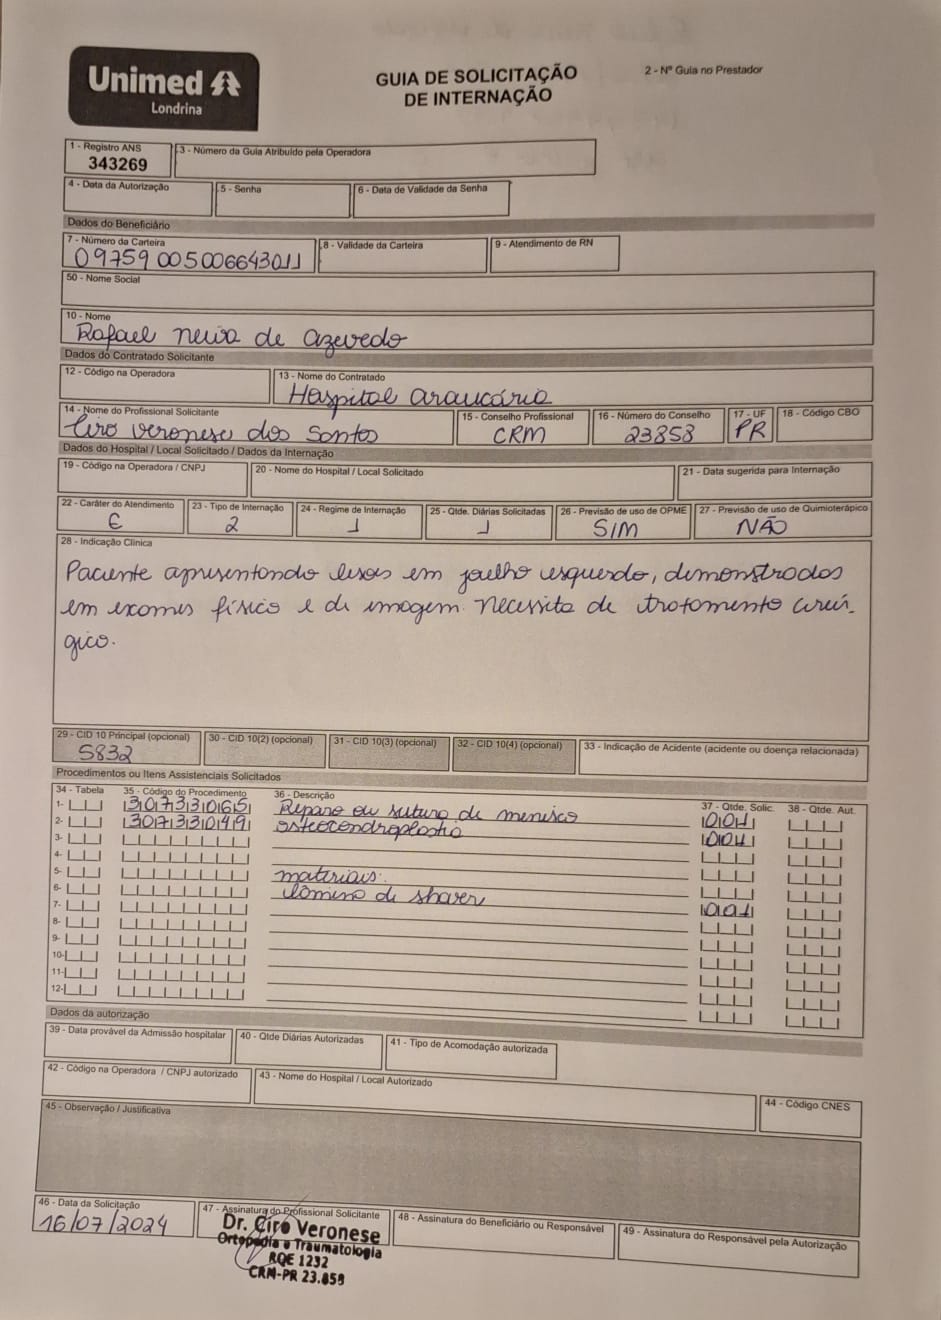 Unimed
Londrina
GUIA DE SOLICITAÇÃO
DE INTERNAÇÃO
2 - Nº Guia no Prestador
1 - Registro ANS
343269
3 - Número da Guia Atribuído pela Operadora
4 - Data da Autorização
5 - Senha
6 - Data de Validade da Senha
Dados do Beneficiário
7 - Número da Carteira
09759005006643011
8 - Validade da Carteira
9 - Atendimento de RN
50 - Nome Social
10 - Nome
Rafael Neiva de Azevedo
Dados do Contratado Solicitante
12 - Código na Operadora
13 - Nome do Contratado
Hospital Araucária
14 - Nome do Profissional Solicitante
Ciro Veronese dos Santos
15 - Conselho Profissional
CRM
16 - Número do Conselho
23858
17 - UF
PR
18 - Código CBO
Dados do Hospital / Local Solicitado / Dados da Internação
19 - Código na Operadora / CNPJ
20 - Nome do Hospital / Local Solicitado
21 - Data sugerida para Internação
22 - Caráter do Atendimento
E
23 - Tipo de Internação
2
24 - Regime de Internação
1
25 - Qtde. Diárias Solicitadas
1
26 - Previsão de uso de OPME
SIM
27 - Previsão de uso de Quimioterápico
NÃO
28 - Indicação Clínica
Paciente apresentando lesões em joelho esquerdo, demonstrados
em exames físico e de imagem. Necessita de tratamento cirúr-
gico.
29 - CID 10 Principal (opcional)
S832
30 - CID 10(2) (opcional)
31 - CID 10(3) (opcional)
32 - CID 10(4) (opcional)
33 - Indicação de Acidente (acidente ou doença relacionada)
Procedimentos ou Itens Assistenciais Solicitados
34 - Tabela 35 - Código do Procedimento 36 - Descrição 37 - Qtde. Solic. 38 - Qtde. Aut.
1- 30733065 Reparo ou sutura de menisco 001
2- 30733049 osteocondroplastia 001
3-
4-
5- materiais.
6- Lâmina de shaver
7- 001
8-
9-
10-
11-
12-
Dados da autorização
39 - Data provável da Admissão hospitalar
40 - Qtde Diárias Autorizadas
41 - Tipo de Acomodação autorizada
42 - Código na Operadora / CNPJ autorizado
43 - Nome do Hospital / Local Autorizado
44 - Código CNES
45 - Observação / Justificativa
46 - Data da Solicitação
16/07/2024
47 - Assinatura do Profissional Solicitante
Dr. Ciro Veronese
Ortopedia e Traumatologia
RQE 1232
CRM-PR 23.858
48 - Assinatura do Beneficiário ou Responsável
49 - Assinatura do Responsável pela Autorização